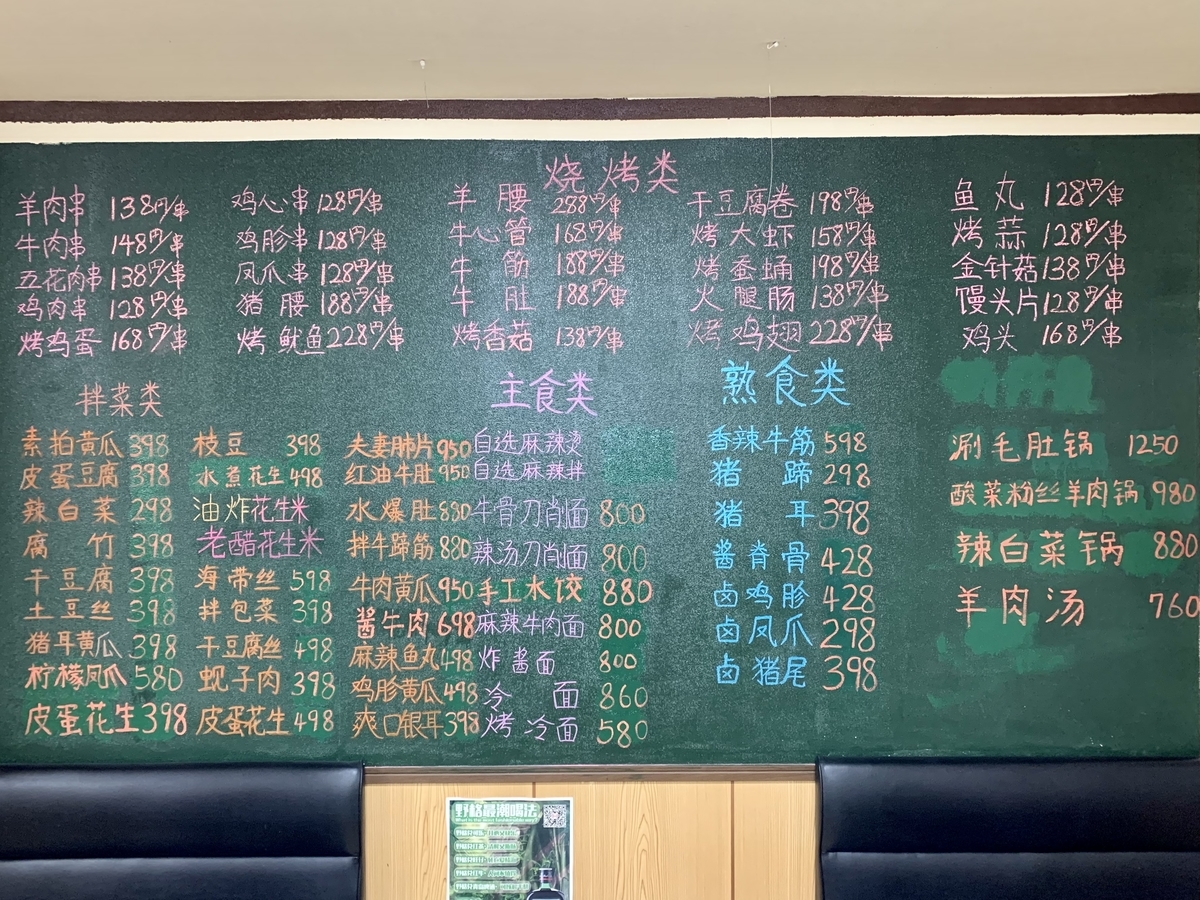 烧烤类
羊肉串 138円/串 鸡心串 128円/串 羊腰 288円/串 干豆腐卷 198円/串 鱼丸 128円/串
牛肉串 148円/串 鸡胗串 128円/串 牛心管 168円/串 烤大虾 158円/串 烤蒜 128円/串
五花肉串 138円/串 凤爪串 128円/串 牛筋 188円/串 烤蚕蛹 198円/串 金针菇 138円/串
鸡肉串 128円/串 猪腰 188円/串 牛肚 188円/串 火腿肠 138円/串 馒头片 128円/串
烤鸡蛋 168円/串 烤鱿鱼 228円/串 烤香菇 138円/串 烤鸡翅 228円/串 鸡头 168円/串
拌菜类
素拍黄瓜 398 枝豆 398 夫妻肺片 950
皮蛋豆腐 398 水煮花生 498 红油牛肚 950
辣白菜 298 油炸花生米 水爆肚 880
腐竹 398 老醋花生米 拌牛蹄筋 880
干豆腐 398 海带丝 598 牛肉黄瓜 950
土豆丝 398 拌包菜 398 酱牛肉 698
猪耳黄瓜 398 干豆腐丝 498 麻辣鱼丸 498
柠檬凤爪 580 蚬子肉 398 鸡胗黄瓜 498
皮蛋花生 398 皮蛋花生 498 爽口银耳 398
主食类
自选麻辣烫
自选麻辣拌
牛骨刀肖面 800
辣汤刀肖面 800
手工水饺 880
麻辣牛肉面 800
炸酱面 800
冷面 860
烤冷面 580
熟食类
香辣牛筋 598
猪蹄 298
猪耳 398
酱脊骨 428
卤鸡胗 428
卤凤爪 298
卤猪尾 398
涮毛肚锅 1250
酸菜粉丝羊肉锅 980
辣白菜锅 880
羊肉汤 760
野格最潮喝法